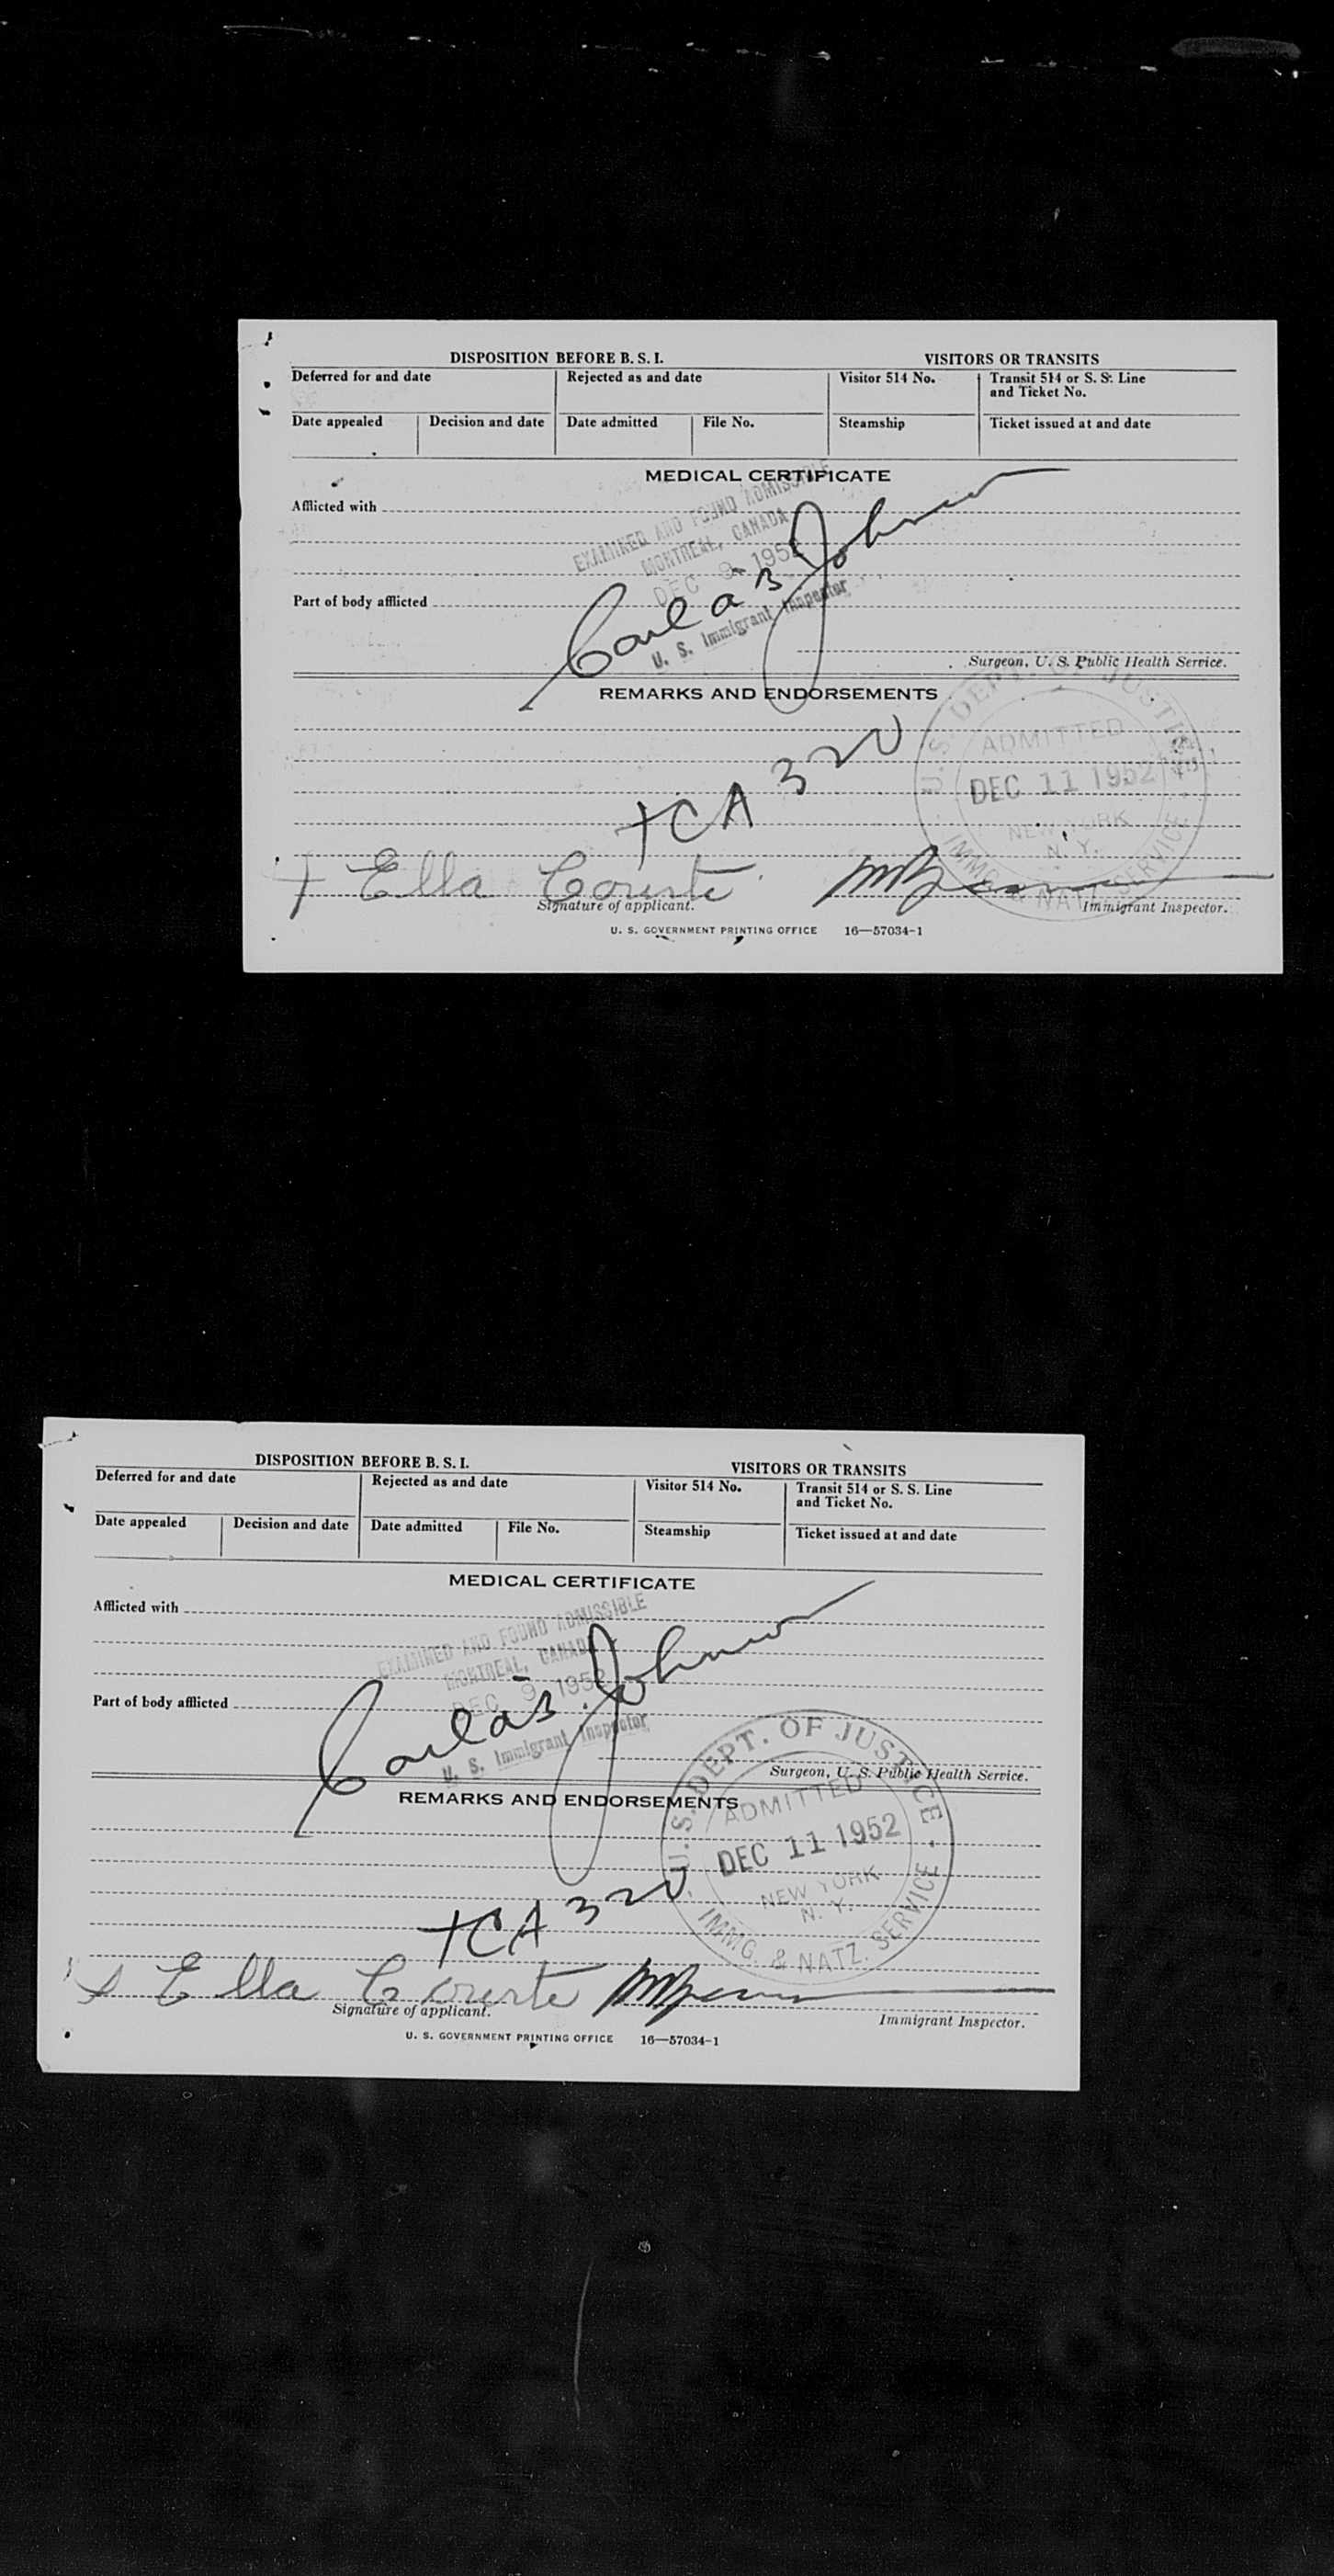 DISPOSITION BEFORE B. S. I.
VISITORS OR TRANSITS
Deferred for and date
Rejected as and date
Visitor 514 No.
Transit 514 or S. S. Line
and Ticket No.
Date appealed
Decision and date
Date admitted
File No.
Steamship
Ticket issued at and date
MEDICAL CERTIFICATE
Afflicted with
EXAMINED AND FOUND ADMISSIBLE
MONTREAL, CANADA
DEC 9 1952
Johnson
U. S. Immigrant Inspector
Part of body afflicted
Surgeon, U. S. Public Health Service.
REMARKS AND ENDORSEMENTS
U. S. DEPT. OF JUSTICE
ADMITTED
DEC 11 1952
NEW YORK
N. Y.
IMMG. & NATZ. SERVICE
TCA 320
Ella
Signature of applicant.
Immigrant Inspector.
U. S. GOVERNMENT PRINTING OFFICE 16—57034-1
DISPOSITION BEFORE B. S. I.
VISITORS OR TRANSITS
Deferred for and date
Rejected as and date
Visitor 514 No.
Transit 514 or S. S. Line
and Ticket No.
Date appealed
Decision and date
Date admitted
File No.
Steamship
Ticket issued at and date
MEDICAL CERTIFICATE
Afflicted with
EXAMINED AND FOUND ADMISSIBLE
MONTREAL, CANADA
DEC 9 1952
Johnson
U. S. Immigrant Inspector
Part of body afflicted
Surgeon, U. S. Public Health Service.
REMARKS AND ENDORSEMENTS
U. S. DEPT. OF JUSTICE
ADMITTED
DEC 11 1952
NEW YORK
N. Y.
IMMG. & NATZ. SERVICE
TCA 320
Ella
Signature of applicant.
Immigrant Inspector.
U. S. GOVERNMENT PRINTING OFFICE 16—57034-1